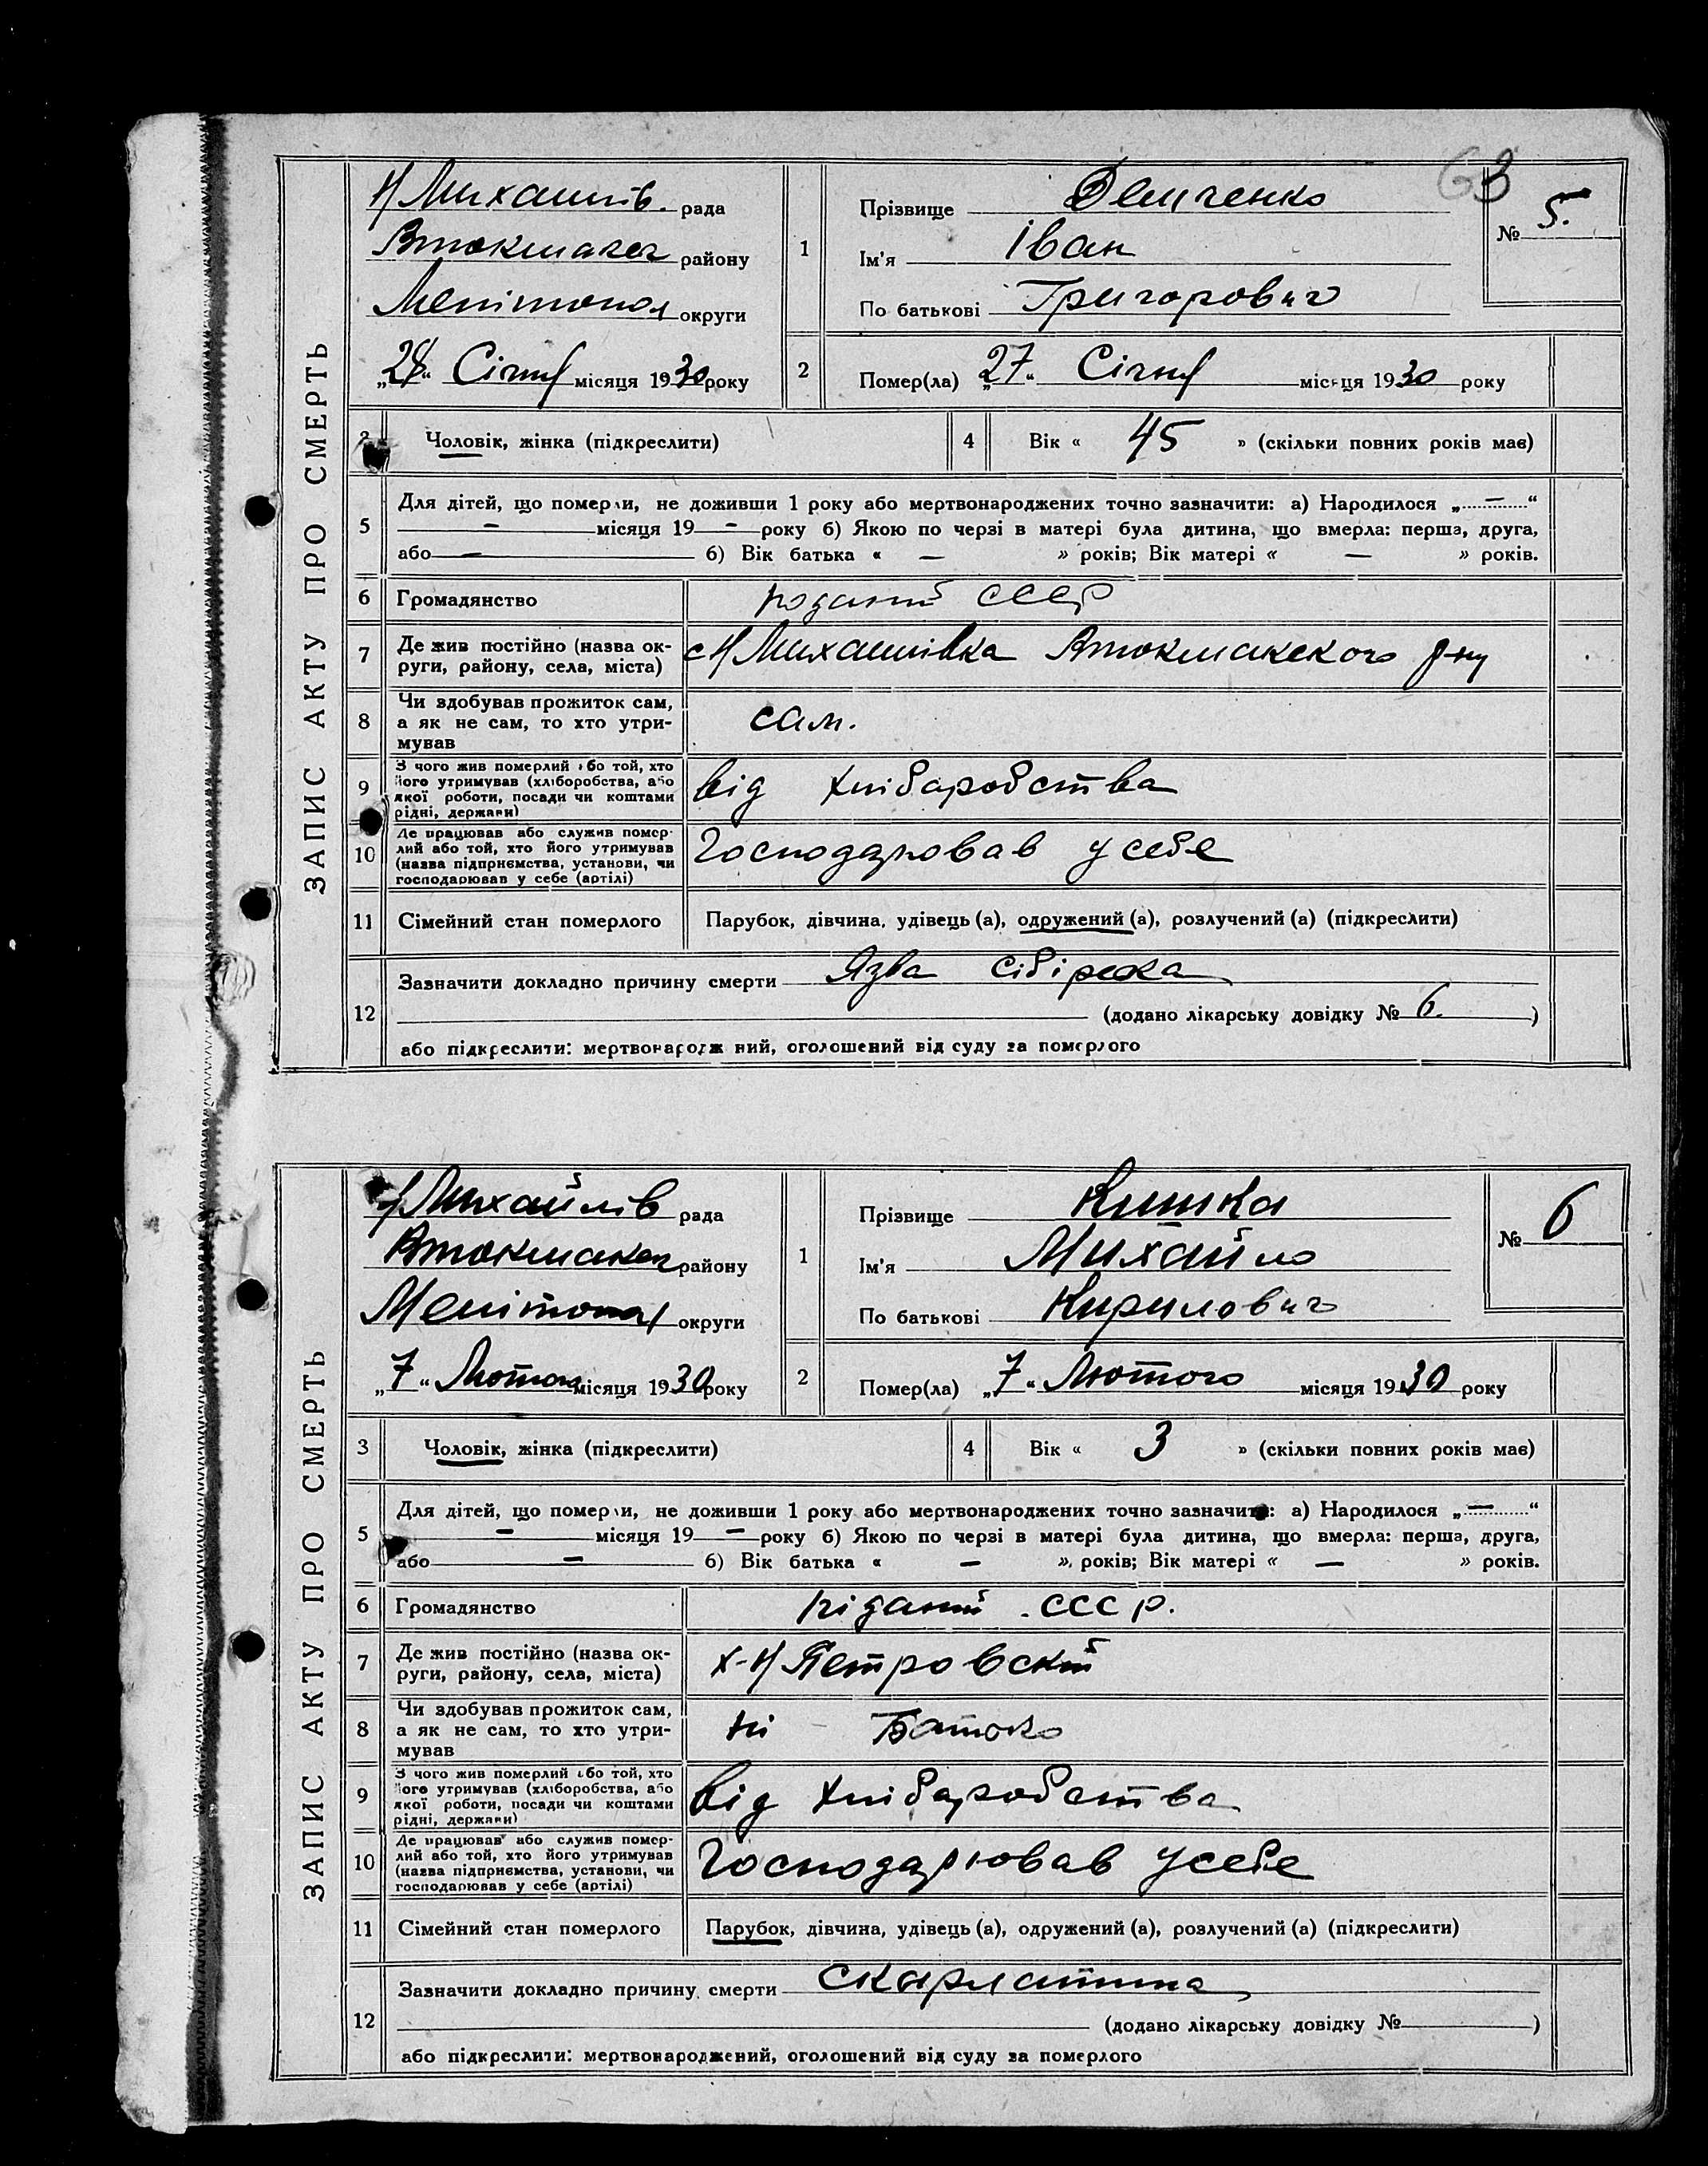 63
ЗАПИС АКТУ ПРО СМЕРТЬ
Н/Михайлів. рада
Втокмакск району
Мелітопол округи
„28“ Січня місяця 1930 року
1
Прізвище Демченко
Ім'я Іван
По батькові Григорович
№ 5.
2
Помер(ла) „27“ Січня місяця 1930 року
3 Чоловік, жінка (підкреслити)
4 Вік « 45 » (скільки повних років має)
5 Для дітей, що померли, не доживши 1 року або мертвонароджених точно зазначити: а) Народилося „ — “
— місяця 19 — року б) Якою по черзі в матері була дитина, що вмерла: перша, друга,
або — б) Вік батька « — » років; Вік матері « — » років.
6 Громадянство поданий СССР
7 Де жив постійно (назва ок-
руги, району, села, міста) с Н/Михайлівка Втокмакского р-ну
8 Чи здобував прожиток сам,
а як не сам, то хто утри-
мував сам.
9 З чого жив померлий або той, хто
його утримував (хліборобства, або
якої роботи, посади чи коштами
рідні, держави) від хліборобства
10 Де працював або служив помер-
лий або той, хто його утримував
(назва підприємства, установи, чи
господарював у себе (артілі) Господарював у себе
11 Сімейний стан померлого Парубок, дівчина, удівець (а), одружений (а), розлучений (а) (підкреслити)
12 Зазначити докладно причину смерти Язва сібірска
(додано лікарську довідку № 6. )
або підкреслити: мертвонароджений, оголошений від суду за померлого
ЗАПИС АКТУ ПРО СМЕРТЬ
Н/Михайлів рада
Втокмакск району
Мелітопол округи
„7“ Лютого місяця 1930 року
1
Прізвище Кишка
Ім'я Михайло
По батькові Кирилович
№ 6
2
Помер(ла) „7“ Лютого місяця 1930 року
3 Чоловік, жінка (підкреслити)
4 Вік « 3 » (скільки повних років має)
5 Для дітей, що померли, не доживши 1 року або мертвонароджених точно зазначити: а) Народилося „ — “
— місяця 19 — року б) Якою по черзі в матері була дитина, що вмерла: перша, друга,
або — б) Вік батька « — » років; Вік матері « — » років.
6 Громадянство піданий СССР.
7 Де жив постійно (назва ок-
руги, району, села, міста) х-Н/Петровский
8 Чи здобував прожиток сам,
а як не сам, то хто утри-
мував ні Батько
9 З чого жив померлий або той, хто
його утримував (хліборобства, або
якої роботи, посади чи коштами
рідні, держави) від хліборобства
10 Де працював або служив помер-
лий або той, хто його утримував
(назва підприємства, установи, чи
господарював у себе (артілі) Господарював у себе
11 Сімейний стан померлого Парубок, дівчина, удівець (а), одружений (а), розлучений (а) (підкреслити)
12 Зазначити докладно причину смерти скарлатина
(додано лікарську довідку № )
або підкреслити: мертвонароджений, оголошений від суду за померлого